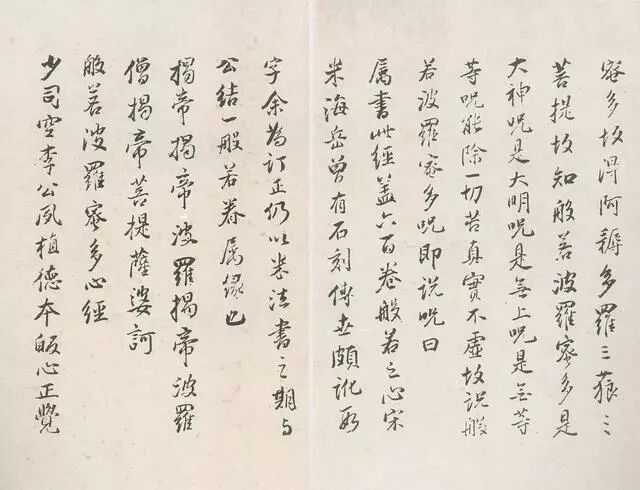 密多故得阿耨多羅三藐三
菩提故知般若波羅蜜多是
大神咒是大明咒是无上咒是无等
等咒能除一切苦真實不虛故說般
若波羅蜜多咒即說咒曰
属書此經蓋六百卷般若之心宋
米海岳曾有石刻傳世頗訛數
字余為訂正仍以米法書之期与
公結一般若眷属缘也
揭帝揭帝波羅揭帝波羅
僧揭帝菩提薩婆訶
般若波羅蜜多心經
少司空李公夙植德本皈心正覺